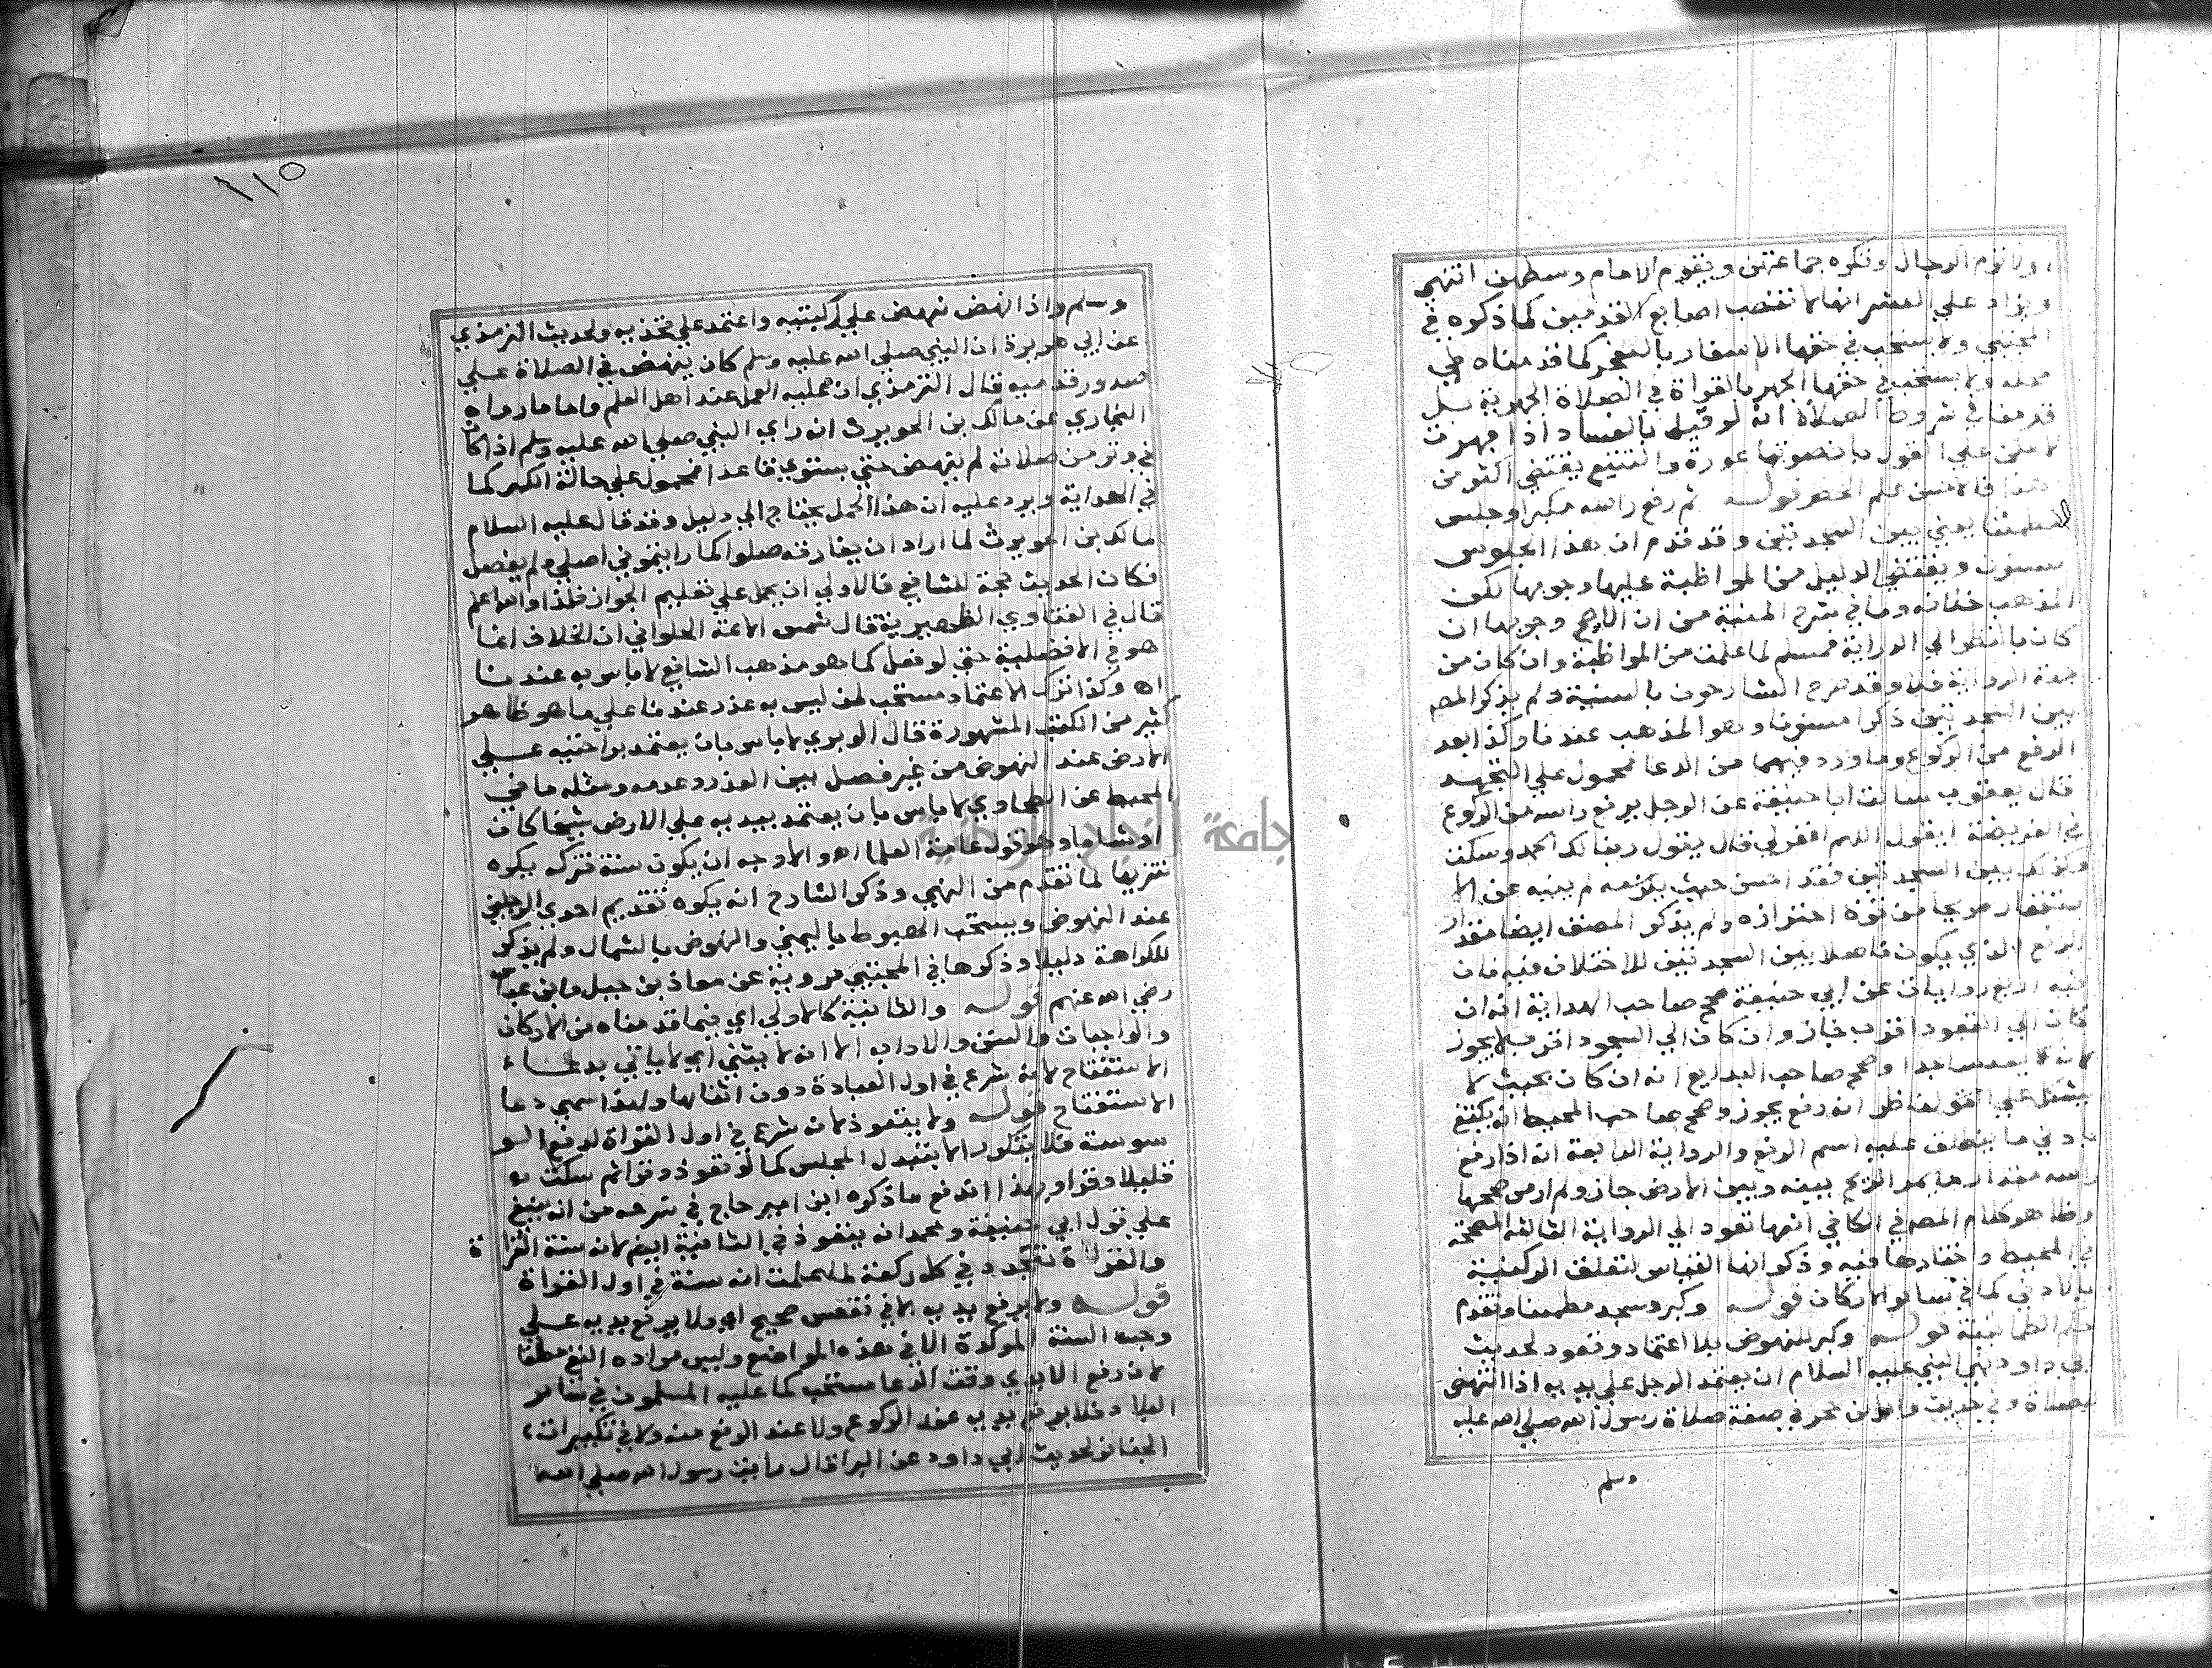 ولا تؤم الرجال وتكره جماعتهن ويقوم الامام وسطهن انتهى
ويزاد علي العشر انها لا تنصب اصابع القدمين كما ذكره في
المجتبي ولا يستحب في حقها الاسفار بالفجر كما قدمناه في
محله ولا يستحب في حقها الجهر بالقراة في الصلاة الجهرية بل
قدمنا في شروط الصلاة انه لو قيل بالفساد اذا جهرت
لامكن علي القول بان صوتها عورة والتتبع يقتضي اكثر من
هذا فالاحسن عدم الحصر قوله ثم رفع راسه مكبرا وجلس
مطمئنا يعني بين السجدتين وقد تقدم ان هذا الجلوس
مسنون ويقتضي الدليل من المواظبة عليها وجوبها لكن
المذهب خلافه وما في شرح المنية من ان الاصح وجوبها ان
كان بالنظر الي الدراية فمسلم لما علمت من المواظبة وان كان من
جهة الرواية فلا وقد صرح الشارحون بالسنية ولم يذكر المص
بين السجدتين ذكرا مسنونا وهو المذهب عندنا وكذا بعد
الرفع من الركوع وما ورد فيهما من الدعا فمحمول علي التهجد
قال يعقوب سالت ابا حنيفة عن الرجل يرفع راسه من الركوع
في الفريضة ايقول اللهم اغفر لي قال يقول ربنا لك الحمد وسكت
وكذلك بين السجدتين فقد احسن حيث لم ينهه عن الا
ستغفار صريحا من قوة احترازه ولم يذكر المصنف ايضا مقدار
الرفع الذي يكون فاصلا بين السجدتين للاختلاف فيه فان
فيه اربع روايات عن ابي حنيفة صحح صاحب الهداية انه ان
كان الي القعود اقرب جاز وان كان الي السجود اقرب لا يجوز
لانه يعد ساجدا وصحح صاحب البدايع انه ان كان بحيث لا
يشكل علي الناظر انه رفع يجوز وصحح صاحب المحيط انه يكتفي
بادني ما ينطلق عليه اسم الرفع والرواية الرابعة انه اذا رفع
راسه مقدار ما يمر الريح بينه وبين الارض جاز ولم ار من صححها
وظاهر كلام المص في الكافي انها تعود الي الرواية الثالثة المصححة
في المحيط واختارها فيه وذكر انها القياس لتعلق الركنية
بالادني كما في سائر الاركان قوله وكبر وسجد مطمئنا وتقدم
حكم الطمانينة قوله وكبر للنهوض بلا اعتماد وقعود لحديث
ابي داود نهي النبي عليه السلام ان يعتمد الرجل علي يديه اذا انتهض
في الصلاة وفي حديث وائل بن حجر في صفة صلاة رسول الله صلي الله عليه
وسلم
١١٥
وسلم واذا نهض نهض علي ركبتيه واعتمد علي فخذيه ولحديث الترمذي
عن ابي هريرة ان النبي صلي الله عليه وسلم كان ينهض في الصلاة علي
صدور قدميه قال الترمذي ان عليه العمل عند اهل العلم واما ما رواه
البخاري عن مالك بن الحويرث انه راي النبي صلي الله عليه وسلم اذا كان
في وتر من صلاته لم ينهض حتي يستوي قاعدا فمحمول علي حالة الكبر كما
في الهداية ويرد عليه ان هذا الحمل يحتاج الي دليل وقد قال عليه السلام
مالك بن الحويرث لما اراد ان يفارقه صلوا كما رايتموني اصلي ولم يفصل
فكان الحديث حجة للشافعي فالاولي ان يحمل علي تعليم الجواز فلذا والله اعلم
قال في الفتاوي الظهيرية قال شمس الائمة الحلواني ان الخلاف انما
هو في الافضلية حتي لو فعل كما هو مذهب الشافعي لا باس به عندنا
اه وكذا ترك الاعتماد مستحب لمن ليس به عذر عندنا علي ما هو ظاهر
كثير من الكتب المشهورة قال الوبري لا باس بان يعتمد براحتيه علي
الارض عند النهوض من غير فصل بين العذر وعدمه ومثله ما في
المحيط عن الطحاوي لا باس بان يعتمد بيديه علي الارض شيخا كان
او شابا وهو قول عامة العلما اه والاوجه ان يكون سنة فتركه يكره
تنزيها لما تقدم من النهي وذكر الشارح انه يكره تقديم احدي الرجلين
عند النهوض ويستحب الهبوط باليمين والنهوض بالشمال ولم يذكر
للكراهة دليلا وذكرها في المجتبي مروية عن معاذ بن جبل وابن عباس
رضي الله عنهم قوله والثانية كالاولي اي فيما قدمناه من الاركان
والواجبات والسنن والاداب الا انه لا يثني اي لا ياتي بدعاء
الاستفتاح لانه شرع في اول العبادة دون اثنائها ولهذا سمي دعا
الاستفتاح قوله ولا يتعوذ لانه شرع في اول القراة لدفع الو
سوسة فلا يتكرر الا بتبدل المجلس كما لو تعوذ وقرا ثم سكت
قليلا وقرا وبهذا اندفع ما ذكره ابن امير حاج في شرحه من انه ينبغي
علي قول ابي حنيفة ومحمد ان يتعوذ في الثانية ايض لانه سنة القراة
والقراة تتجدد في كل ركعة لما علمت انه سنة في اول القراة
قوله ولا يرفع يديه الا في فقعس صمعج اي ولا يرفع يديه علي
وجه السنة الموكدة الا في هذه المواضع وليس مراده النفي مطلقا
لان رفع الايدي وقت الدعا مستحب كما عليه المسلمون في سائر
البلاد فلا يرفع يديه عند الركوع ولا عند الرفع منه ولا في تكبيرات
الجنائز لحديث ابي داود عن البراء قال رايت رسول الله صلي الله
جامعة النجاح الوطنية